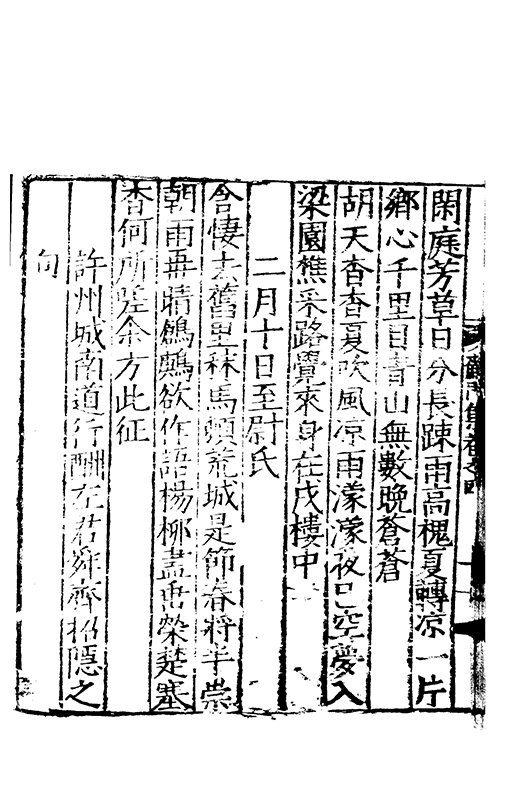 蘇門集卷之四
閑庭芳草日分長踈雨高槐夏轉凉一片
鄉心千里目青山無數晚蒼蒼
胡天杳杳夏吹風凉雨濛濛夜已空夢入
梁園樵采路覺來身在戍樓中
二月十日至尉氏
含悽去舊里秣馬頓荒城是節春將半崇
朝雨再晴鶬鶊欲作語楊柳盡垂榮楚塞
杳何所嗟余方此征
許州城南道行酬左君舜齊招隱之
句